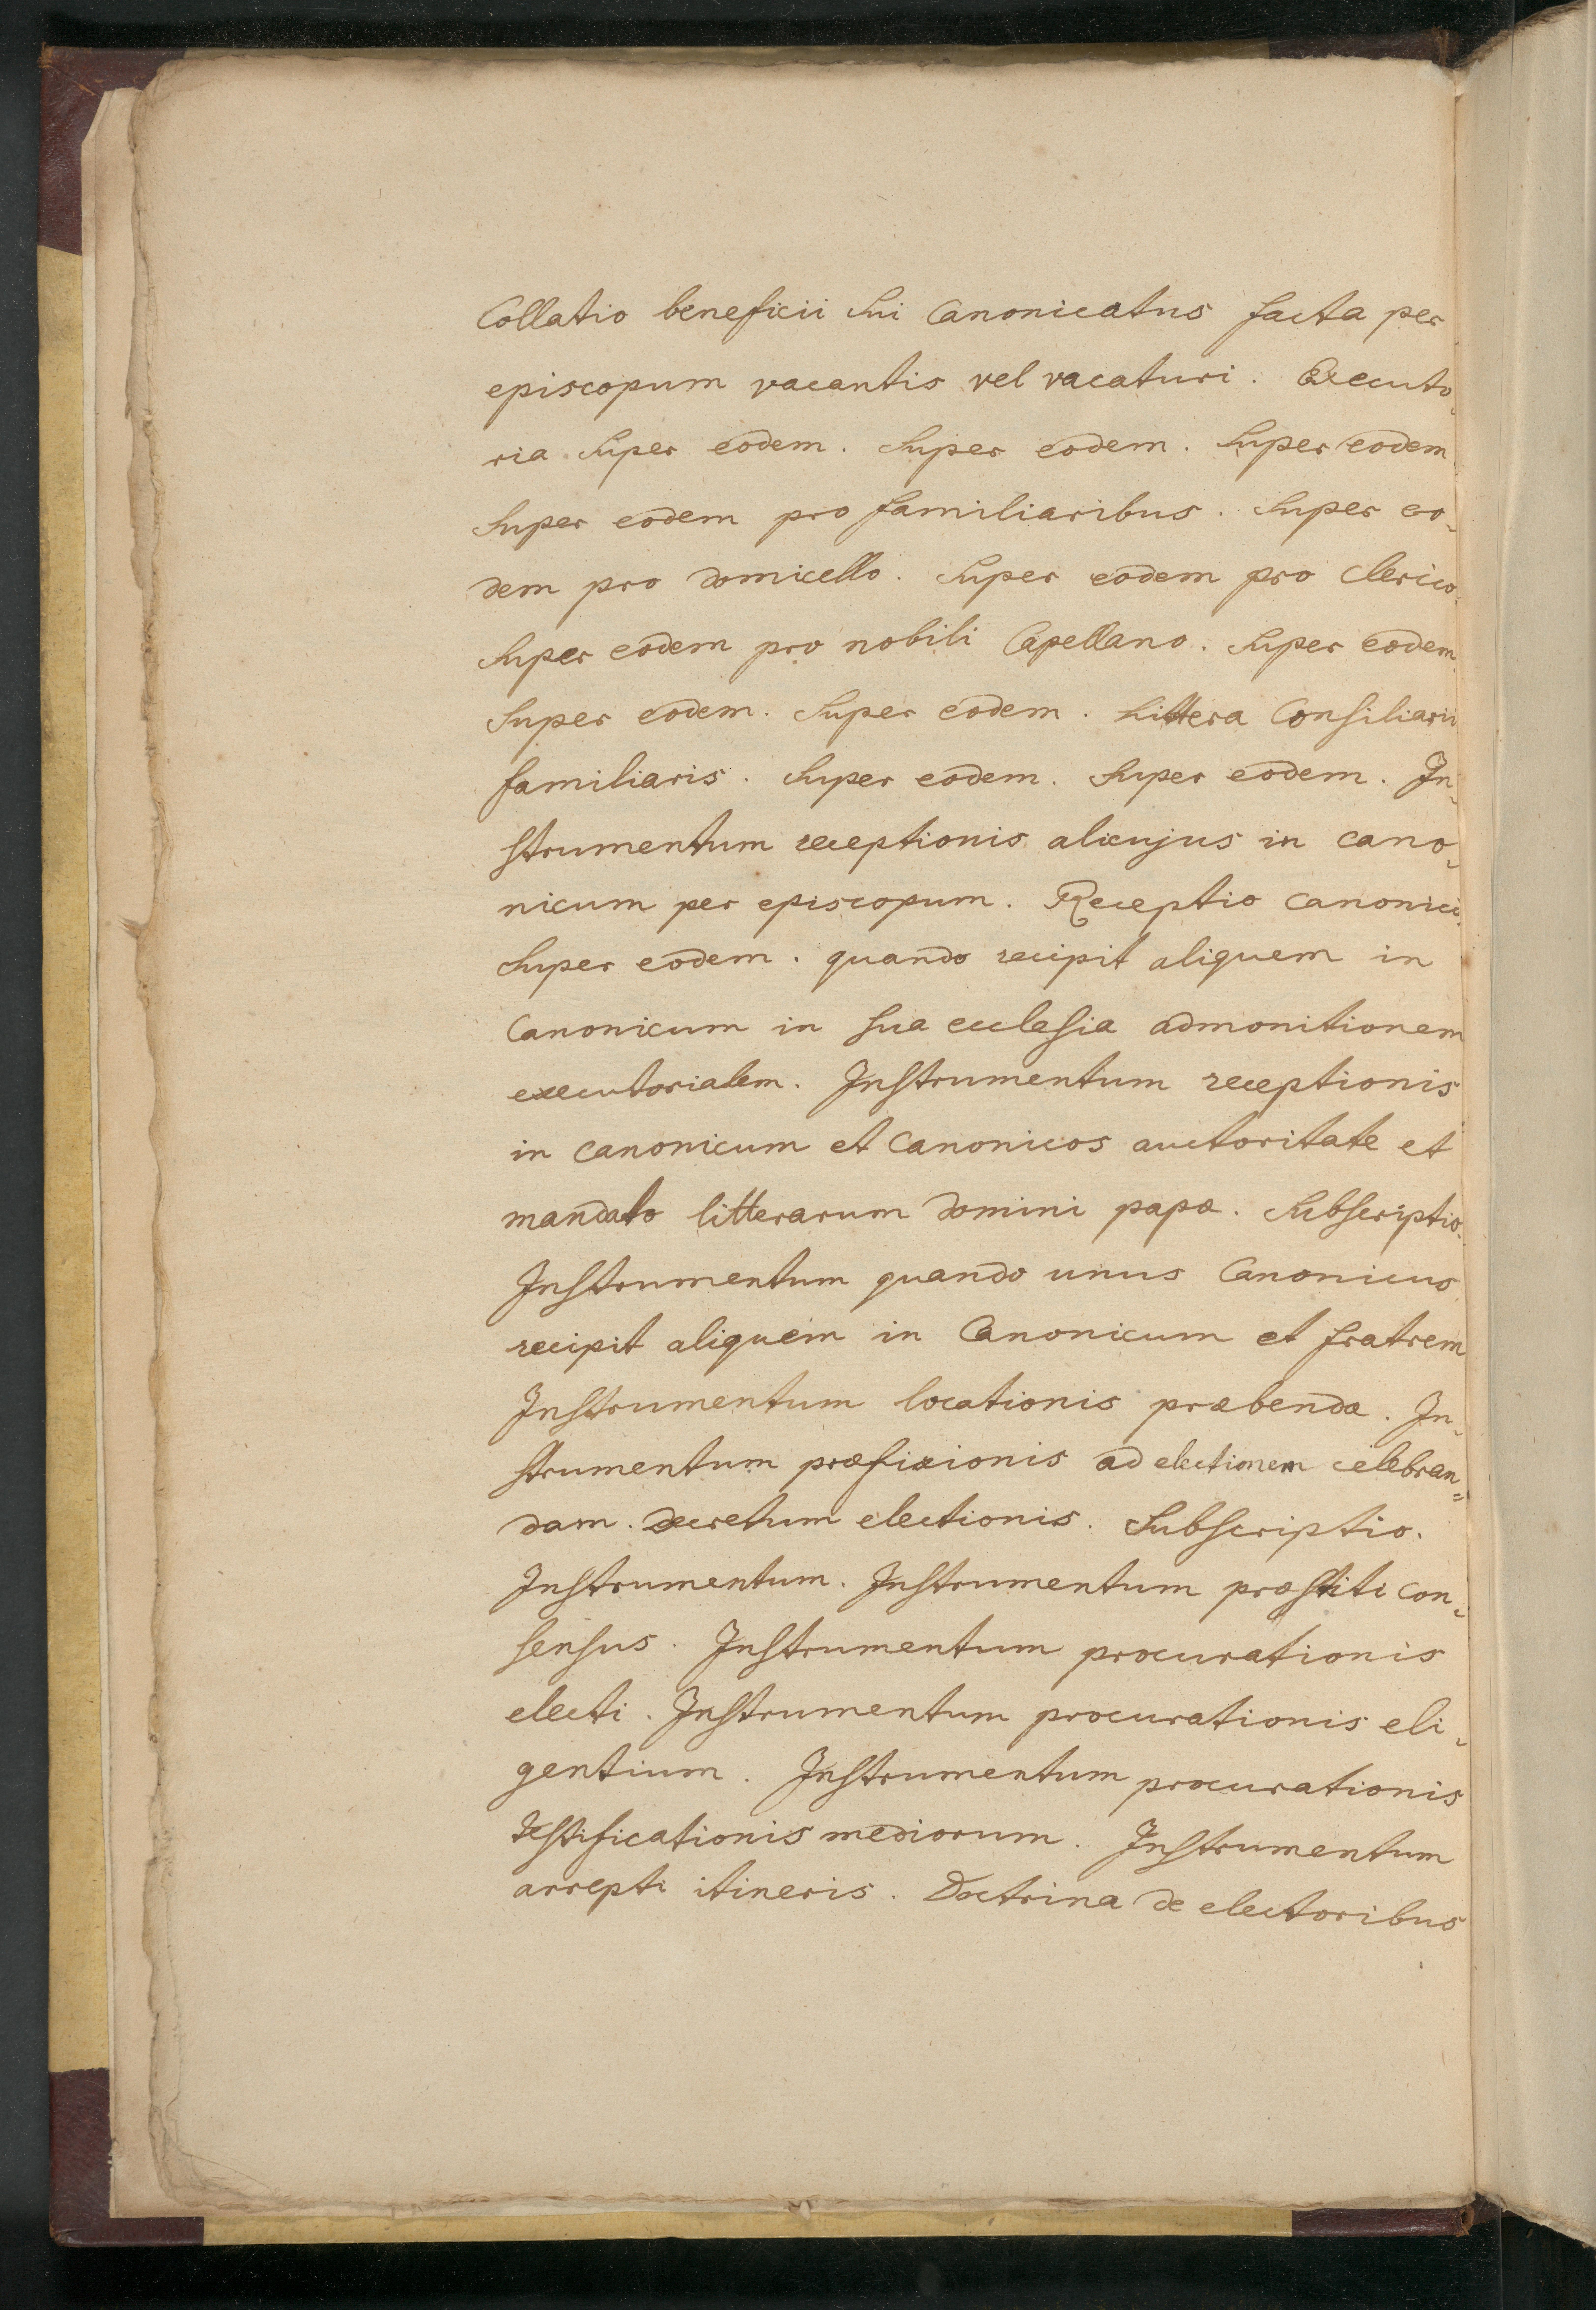 Collatio beneficii sui Canonicatus facta per
episcopum vacantis vel vacaturi. Executo-
ria super eodem. Super eodem. Super eodem
Super eodem pro familiaribus. Super eo-
dem pro domicello. Super eodem pro Clerico.
Super eodem pro nobili Capellano. Super eodem.
Super eodem. Super eodem. Littera Consiliarii
familiaris. Super eodem. Super eodem. In-
strumentum receptionis alicujus in cano-
nicum per episcopum. Receptio canonici.
Super eodem. quando recipit aliquem in
Canonicum in sua ecclesia admonitionem
executorialem. Instrumentum receptionis
in canonicum et Canonicos auctoritate et
mandato litterarum domini papæ. Subscriptio.
Instrumentum quando unus Canonicus
recipit aliquem in Canonicum et fratrem
Instrumentum locationis præbendæ. In-
strumentum præfixionis ad electionem celebran=
dam. decretum electionis. Subscriptio.
Instrumentum. Instrumentum præstiti con-
sensus. Instrumentum procurationis
electi. Instrumentum procurationis eli-
gentium. Instrumentum procurationis
testificationis mediorum. Instrumentum
arrepti itineris. Doctrina de electoribus